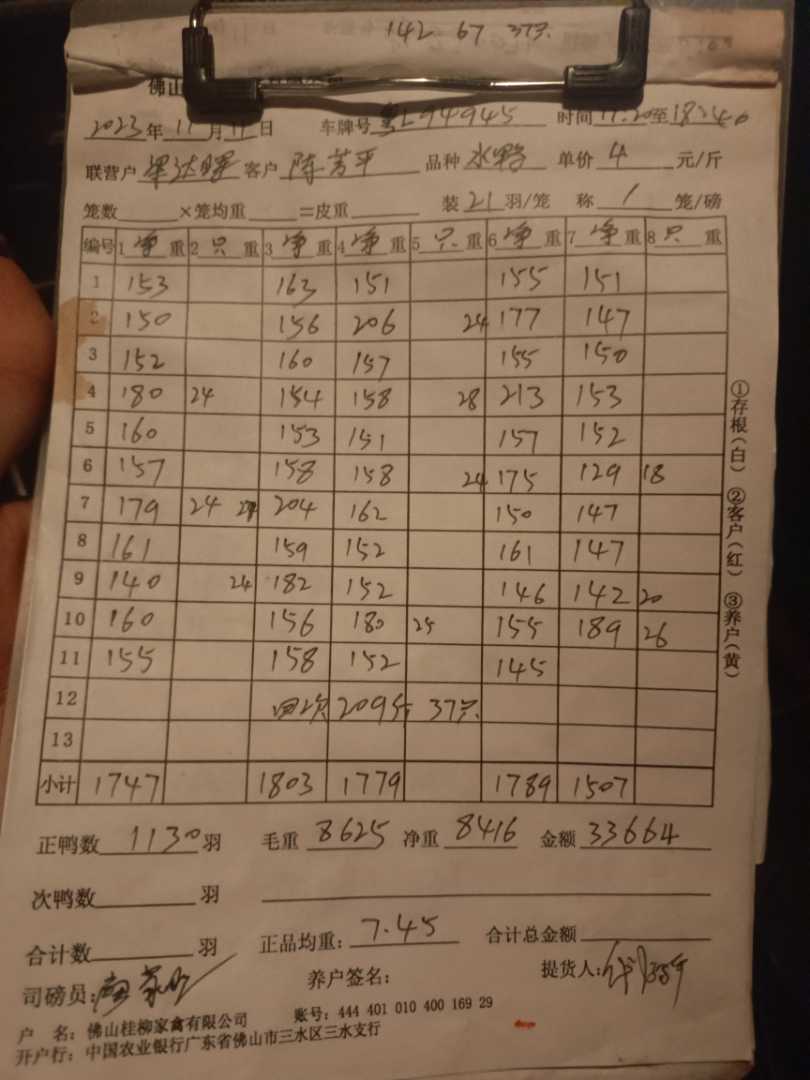 142 67 37只
佛山
2023年11月11日 车牌号粤L94945 时间17:20至18:24
联营户 客户 陈芳平 品种水鸭 单价4元/斤
笼数 ×笼均重 =皮重 装21羽/笼 称1笼/磅
编号 1净重 2只重 3净重 4净重 5只重 6净重 7净重 8只重
1 153 163 151 155 151
2 150 156 206 24 177 147
3 152 160 157 155 150
4 180 24 154 158 28 213 153
5 160 153 151 157 152
6 157 158 158 24 175 129 18
7 179 24 204 162 150 147
8 161 159 152 161 147
9 140 24 182 152 146 142 20
10 160 156 180 25 155 189 26
11 155 158 152 145
12 回次 209斤 37只
13
小计 1747 1803 1779 1789 1507
正鸭数1130羽 毛重8625 净重8416 金额33664
次鸭数 羽
合计数 羽 正品均重:7.45 合计总金额
司磅员: 养户签名: 提货人:
户 名:佛山桂柳家禽有限公司 账号:444 401 010 400 169 29
开户行:中国农业银行广东省佛山市三水区三水支行
①存根(白) ②客户(红) ③养户(黄)